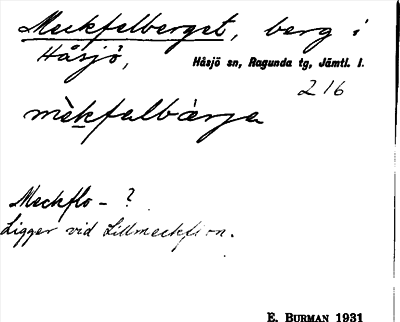 Meckfelberget, berg i
Håsjö,
Håsjö sn, Ragunda tg, Jämtl. l.
216
mèkfalbàrja
Meckflo- ?
Ligger vid Lillmeckflon.
E. BURMAN 1931